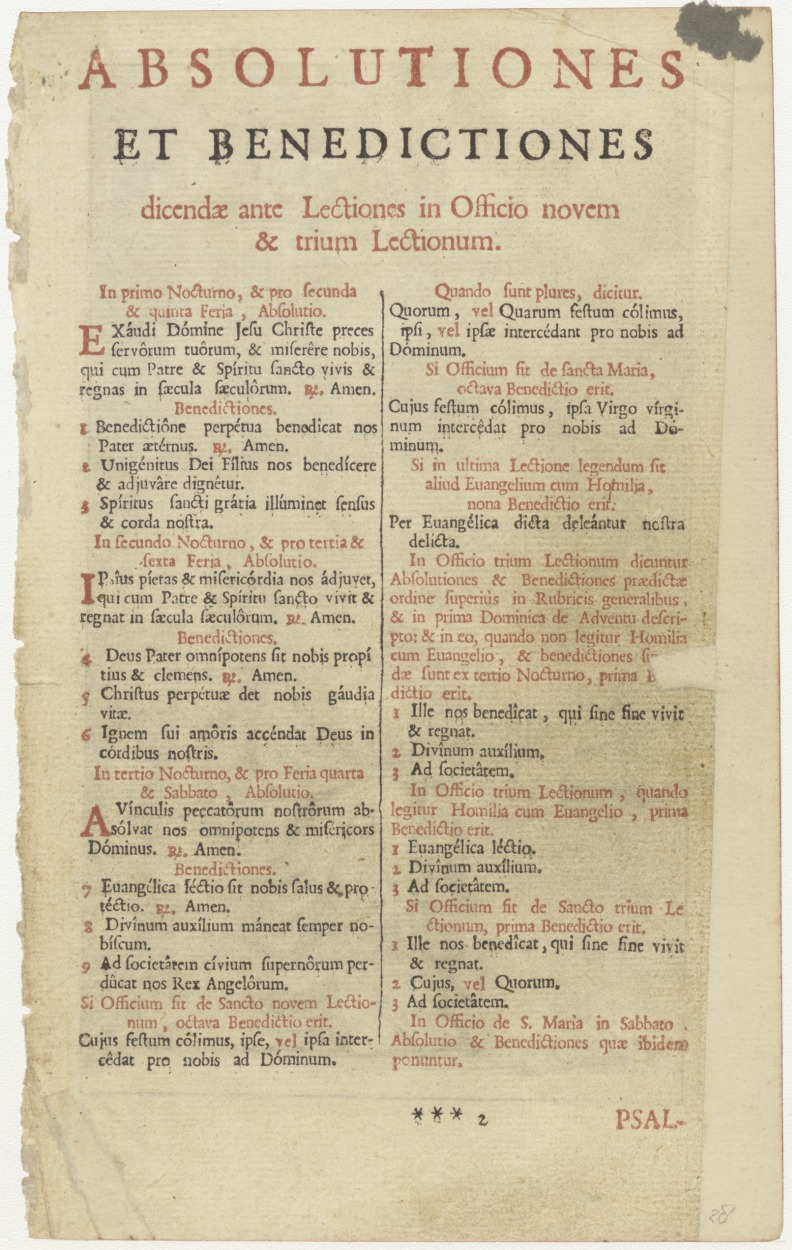 ABSOLUTIONES
ET BENEDICTIONES
dicendæ ante Lectiones in Officio novem
& trium Lectionum.
In primo Nocturno, & pro secunda
& quinta Feria, Absolutio.
EXáudi Dómine Jesu Christe preces
servôrum tuôrum, & miserêre nobis,
qui cum Patre & Spíritu sancto vivis &
regnas in sæcula sæculôrum. ℟. Amen.
Benedictiones.
1 Benedictiône perpétua benedîcat nos
Pater ætérnus. ℟. Amen.
2 Unigénitus Dei Fílius nos benedícere
& adjuvâre dignêtur.
3 Spíritus sancti grátia illúminet sensus
& corda nostra.
In secundo Nocturno, & pro tertia &
sexta Feria, Absolutio.
IPsius píetas & misericórdia nos ádjuvet,
qui cum Patre & Spíritu sancto vivit &
regnat in sæcula sæculôrum. ℟. Amen.
Benedictiones.
4 Deus Pater omnípotens sit nobis propí
tius & clemens. ℟. Amen.
5 Christus perpétuæ det nobis gáudia
vitæ.
6 Ignem sui amôris accéndat Deus in
córdibus nostris.
In tertio Nocturno, & pro Feria quarta
& Sabbato, Absolutio.
A Vínculis peccatôrum nostrôrum ab-
sólvat nos omnípotens & miséricors
Dóminus. ℟. Amen.
Benedictiones.
7 Euangélica léctio sit nobis salus & pro-
téctio. ℟. Amen.
8 Divînum auxílium máneat semper no-
bíscum.
9 Ad societâtem cívium supernôrum per-
dûcat nos Rex Angelôrum.
Si Officium sit de Sancto novem Lectio-
num, octava Benedictio erit.
Cujus festum cólimus, ipse, vel ipsa inter-
cêdat pro nobis ad Dóminum.
Quando sunt plures, dicitur.
Quorum, vel Quarum festum cólimus,
ipsi, vel ipsæ intercédant pro nobis ad
Dóminum.
Si Officium sit de sancta Maria,
octava Benedictio erit.
Cujus festum cólimus, ipsa Virgo vírgi-
num intercêdat pro nobis ad Dó-
minum.
Si in ultima Lectione legendum sit
aliud Euangelium cum Homilia,
nona Benedictio erit.
Per Euangélica dicta deleántur nostra
delícta.
In Officio trium Lectionum dicuntur
Absolutiones & Benedictiones prædictæ
ordine superiùs in Rubricis generalibus,
& in prima Dominica de Adventu descri-
pto: & in eo, quando non legitur Homilia
cum Euangelio, & benedictiones
dæ sunt ex tertio Nocturno, prima
dictio erit.
1 Ille nos benedîcat, qui sine fine vivit
& regnat.
2 Divînum auxílium.
3 Ad societâtem.
In Officio trium Lectionum, quando
legitur Homilia cum Euangelio, prima
Benedictio erit.
1 Euangélica léctio.
2 Divînum auxílium.
3 Ad societâtem.
Si Officium sit de Sancto trium Le
ctionum, prima Benedictio erit.
1 Ille nos benedîcat, qui sine fine vivit
& regnat.
2 Cujus, vel Quorum.
3 Ad societâtem.
In Officio de S. Maria in Sabbato
Absolutio & Benedictiones quæ ibidem
ponuntur.
*** 2 PSAL-
28